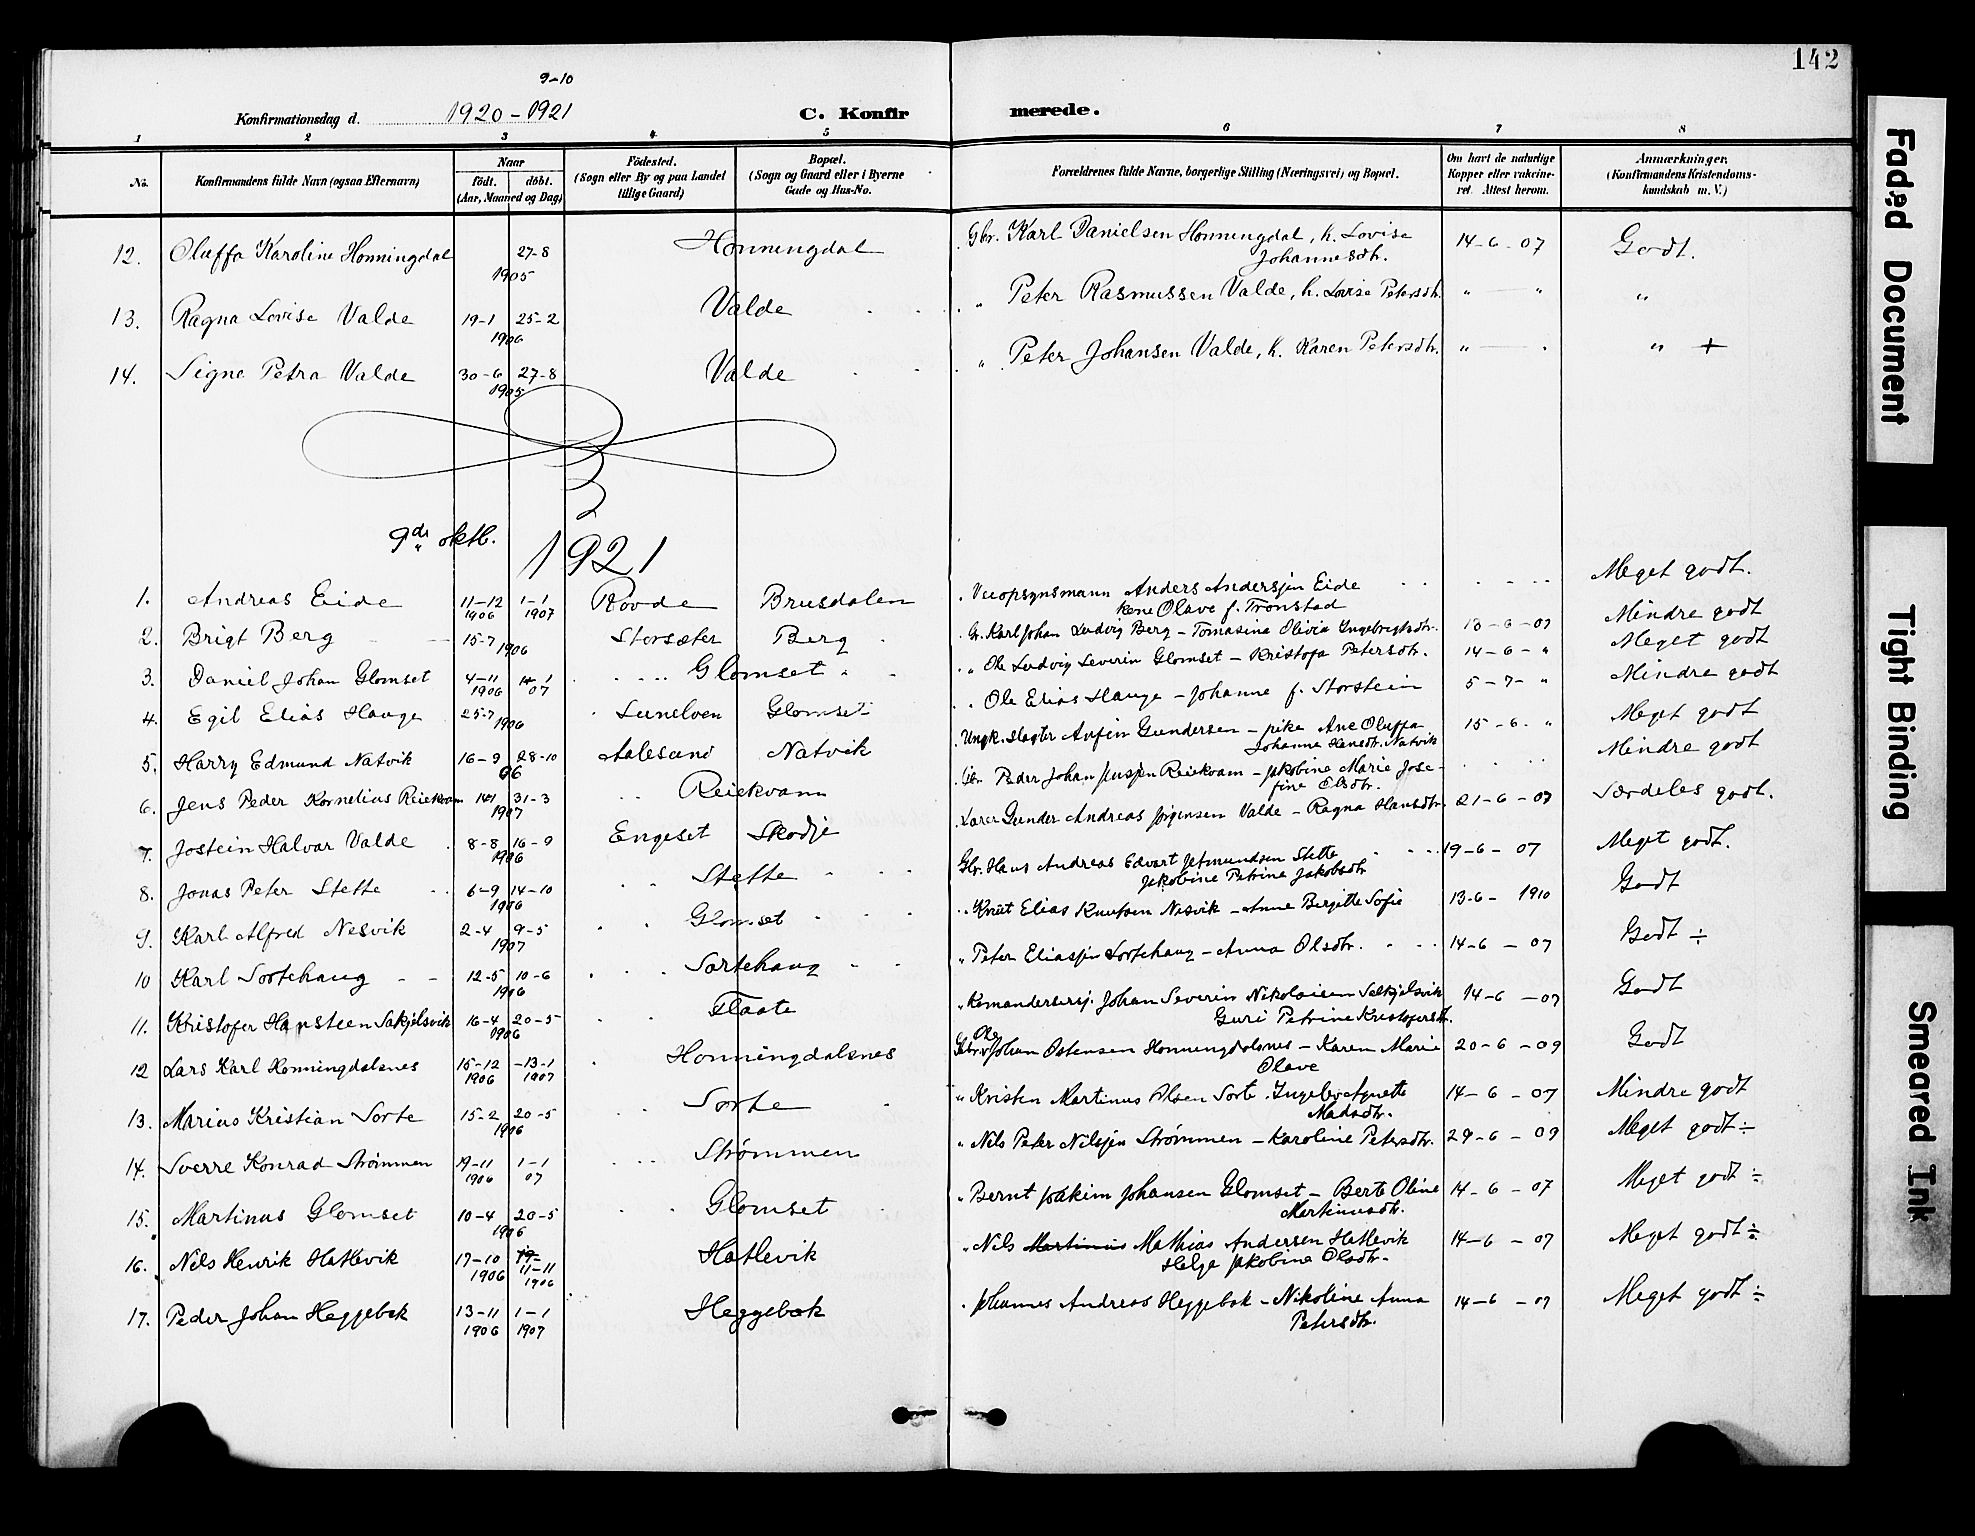 142
9-10
Konfirmationsdag d. 1920-1921 C. Konfirmerede.
1 2 3 4 5 6 7 8
No. Konfirmandens fulde Navn (ogsaa Efternavn) Naar født. døbt. (Aar, Maaned og Dag) Födested. (Sogn eller By og paa Landet tillige Gaard) Bopæl. (Sogn og Gaard eller i Byerne Gade og Hus-No. Forældrenes fulde Navne, borgerlige Stilling (Næringsvei) og Bopæl. Om havt de naturlige Kopper eller vakcineret. Attest herom. Anmærkninger. (Konfirmandens Kristendomskundskab m. V.)
12. Oluffa Karoline Honningdal 27-8 1905 Honningdal Gbr. Karl Danielsen Honningdal, h. Lovise Johannesdtr. 14-6-07 Godt.
13. Ragna Lovise Valde 19-1 25-2 1906 Valde " Peter Rasmussen Valde, h. Lovise Petersdtr. " — " "
14. Signe Petra Valde 30-6 27-8 1905 Valde " Peter Johansen Valde, h. Karen Petersdtr. " — " " +
9de oktb. 1921
1. Andreas Eide 11-12 1906 1-1 1907 Rovde Brusdalen Veiopsynsmann Anders Andersen Eide kone Olave f. Tronstad Meget godt.
2. Brigt Berg 15-7 1906 Storsæter Berg G. Karl Johan Ludvig Berg - Tomasina Olivia Ingebrigtsdtr. 13-6-07 Mindre godt
3. Daniel Johan Glomset 4-11 1906 14-1 07 Glomset " Ole Ludvig Severin Glomset - Kristofa Petersdtr. 14-6-" Meget godt
4. Egil Elias Hauge 25-7 1906 Glomset Ole Elias Hauge - Johanne f. Storstein 5-7-" Mindre godt
5. Harry Edmund Natvik 16-9 28-10 06 Aalesund Natvik Ungk. slagter Anfin Gundersen - pike Ane Oluffa Johanne Hansdtr. Natvik 15-6-" Meget godt
6. Jens Peder Kornelius Reiekvam 31-3 1907 Reiekvam Peder Johan Jensen Reiekvam - Jakobine Marie Josefine Olsdtr. Mindre godt
7. Jostein Halvar Valde 8-8 16-9 1906 Engeset Skodje Lærer Gunder Andreas Jørgensen Valde - Ragna Hansdtr. 21-6-07 Særdeles godt.
8. Jonas Peter Stette 6-9 14-10 1906 Stette Gbr. Hans Andreas Edvart Jetmundsen Stette Jakobine Petrine Jakobsdtr 19-6-07 Meget godt.
9. Karl Alfred Nesvik 2-4 9-5 1907 Glomset Knut Elias Knutsen Nesvik - Anne Birgitte Sofie 13-6-1910 Godt
10 Karl Sortehaug 12-5 10-6 1906 Sortehaug " Peter Eliassen Sortehaug - Anna Olsdtr. 14-6-07 Godt ÷
11. Kristofer Hansteen Sakjelsvik 16-4 20-5 1906 Flaate " Johan Severin Nikolaisen Guri Petrine Kristofersdtr. 14-6-07 Godt
12 Lars Karl Honningdalsnes 15-12 1906 13-1 1907 Honningdalsnes Johan Ostensen Honningdalsnes - Karen Marie Olave 20-6-09 Godt
13. Marius Kristian Sorte 15-2 20-5 1906 Sorte " Kristen Martinus Olsen Sorte. Ingeborg Agnette Madsdtr. 14-6-07 Mindre godt
14. Sverre Konrad Strømmen 19-11 1906 1-1 07 Strømmen " Nils Peter Nilsen Strømmen - Karoline Petersdtr. 29-6-09 Meget godt ÷
15. Martinus Glomset 10-4 20-5 1906 Glomset " Bernt Joakim Johansen Glomset - Berte Oline Martinusdtr. 14-6-07 Meget godt ÷
16. Nils Henrik Hatlevik 17-10 1906 11-11 1906 Hatlevik " Nils Martinus Mathias Andersen Hatlevik Helge Jakobine Olsdtr. 14-6-07 Meget godt ÷
17. Peder Johan Heggebak 13-11 1906 1-1 1907 Heggebak Johannes Andreas Heggebak - Nikoline Anna Petersdtr. 14-6-07 Meget godt ÷
Faded Document
Tight Binding
Smeared Ink